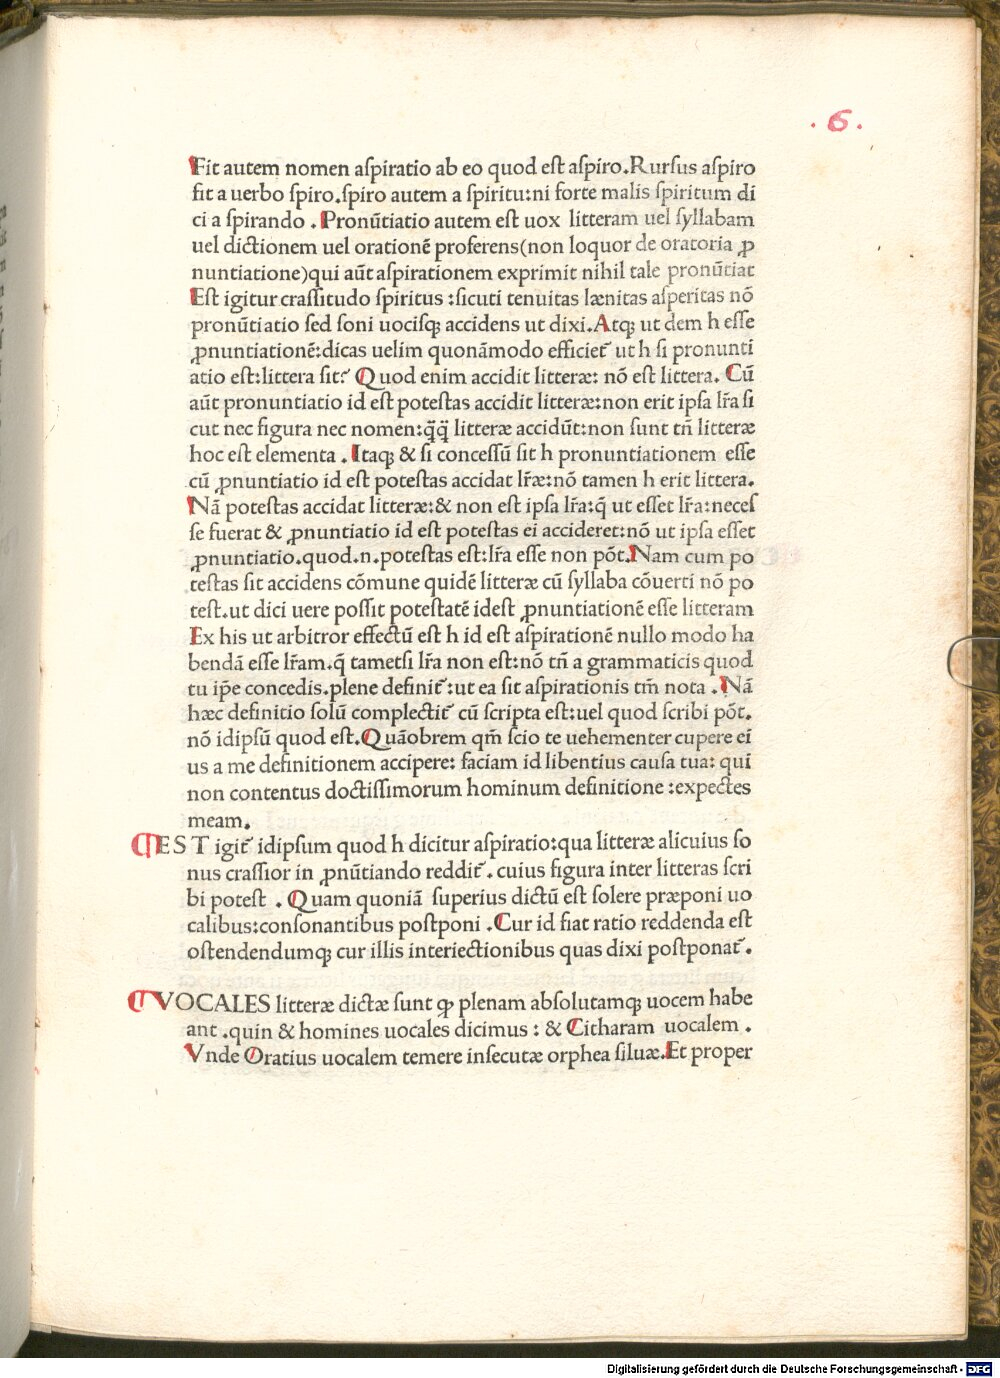 . 6 .
Fit autem nomen aſpiratio ab eo quod eſt aſpiro.Rurſus aſpiro
fit a uerbo ſpiro.ſpiro autem a ſpiritu:ni forte malis ſpiritum di
ci a ſpirando . Pronũtiatio autem eſt uox litteram uel ſyllabam
uel dictionem uel orationẽ proferens(non loquor de oratoria ꝓ
nuntiatione)qui aũt aſpirationem exprimit nihil tale pronũtiat
Eſt igitur craſſitudo ſpiritus :ſicuti tenuitas lænitas aſperitas nõ
pronũtiatio ſed ſoni uociſqꝫ accidens ut dixi.Atqꝫ ut dem h eſſe
ꝓnuntiationẽ:dicas uelim quonãmodo efficiet᷑ ut h ſi pronunti
atio eſt:littera ſit? Quod enim accidit litteræ: nõ eſt littera. Cũ
aũt pronuntiatio id eſt poteſtas accidit litteræ:non erit ipſa lr̃a ſi
cut nec figura nec nomen:q̃q̃ litteræ accidũt:non ſunt tñ litteræ
hoc eſt elementa . Itaqꝫ & ſi conceſſũ ſit h pronuntiationem eſſe
cũ ꝓnuntiatio id eſt poteſtas accidat lr̃æ:nõ tamen h erit littera.
Nã poteſtas accidat litteræ:& non eſt ipſa lr̃a:q̃ ut eſſet lr̃a:neceſ
ſe fuerat & ꝓnuntiatio id eſt poteſtas ei accideret:nõ ut ipſa eſſet
ꝓnuntiatio.quod.n.poteſtas eſt:lr̃a eſſe non põt.Nam cum po
teſtas ſit accidens cõmune quidẽ litteræ cũ ſyllaba cõuerti nõ po
teſt.ut dici uere poſſit poteſtatẽ ideſt ꝓnuntiationẽ eſſe litteram
Ex his ut arbitror effectũ eſt h id eſt aſpirationẽ nullo modo ha
bendã eſſe lr̃am.q̃ tametſi lr̃a non eſt:nõ tñ a grammaticis quod
tu ip̃e concedis.plene definit᷑:ut ea ſit aſpirationis tm̃ nota .Nã
hæc definitio ſolũ complectit᷑ cũ ſcripta eſt:uel quod ſcribi põt.
nõ idipſũ quod eſt.Quãobrem qm̃ ſcio te uehementer cupere ei
us a me definitionem accipere: faciam id libentius cauſa tua: qui
non contentus doctiſſimorum hominum definitione :expectes
meam.
EST igit᷑ idipſum quod h dicitur aſpiratio:qua litteræ alicuius ſo
nus craſſior in ꝓnũtiando reddit᷑ . cuius figura inter litteras ſcri
bi poteſt . Quam quoniã ſuperius dictũ eſt ſolere præponi uo
calibus:conſonantibus poſtponi .Cur id fiat ratio reddenda eſt
oſtendendumqꝫ cur illis interiectionibus quas dixi poſtponat᷑ .
VOCALES litteræ dictæ ſunt ꝙ plenam abſolutamqꝫ uocem habe
ant .quin & homines uocales dicimus : & Citharam uocalem .
Vnde Oratius uocalem temere inſecutæ orphea ſiluæ.Et proper
Digitalisierung gefördert durch die Deutsche Forschungsgemeinschaft - DFG